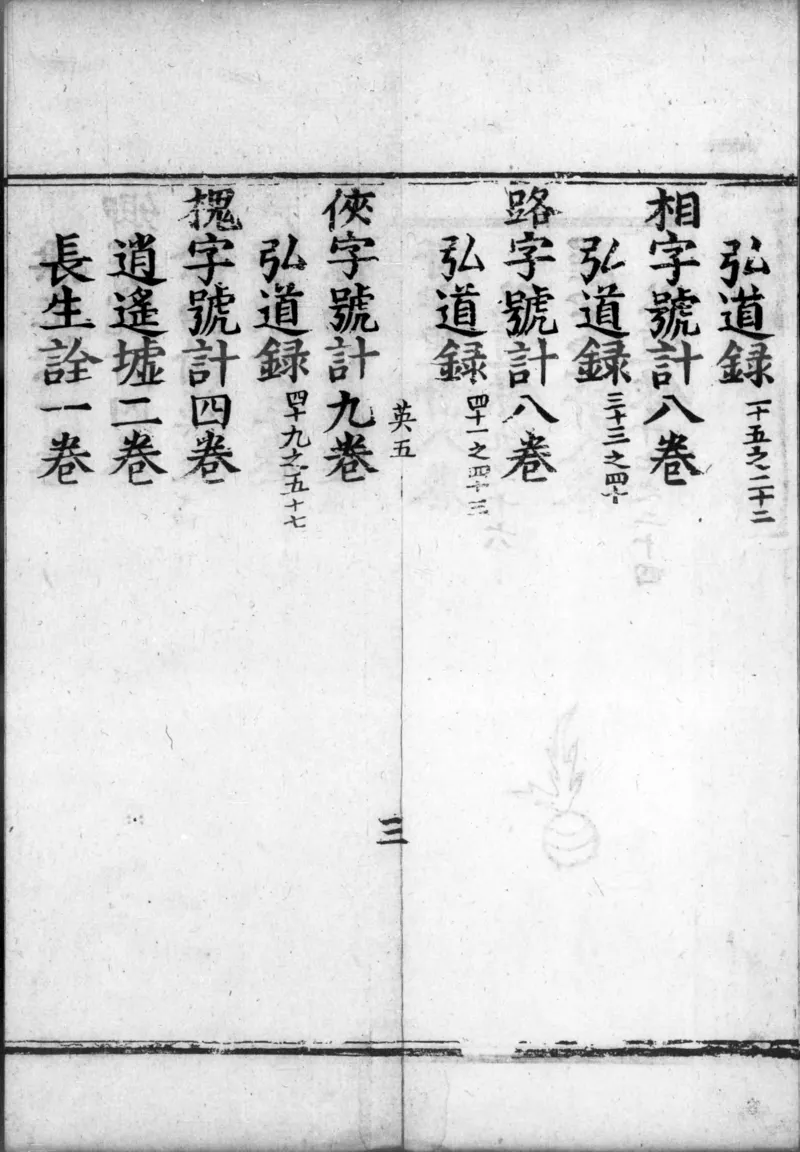 弘道録 一十五之二十二
相字號計八卷
弘道録 三十三之四十
路字號計八卷
弘道録 四十一之四十三
英五 三
俠字號計九卷
弘道録 四十九之五十七
槐字號計四卷
逍遙墟二卷
長生詮一卷